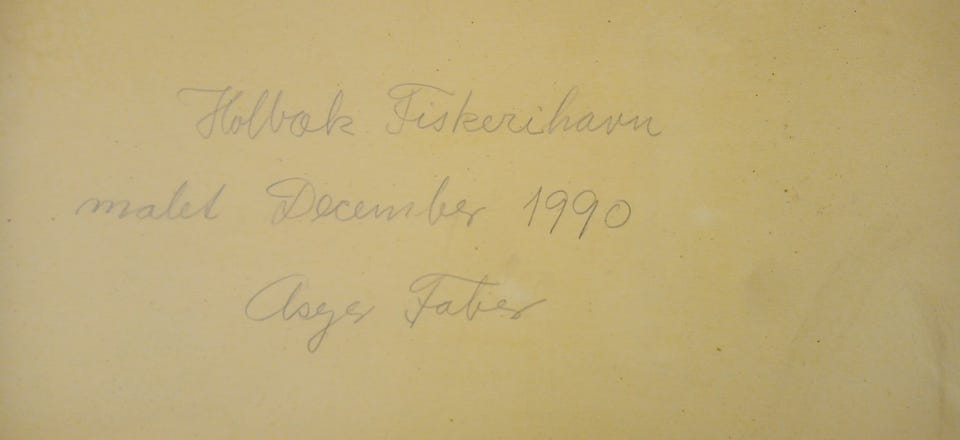 Holbæk Fiskerihavn
malet December 1990
Asger Faber